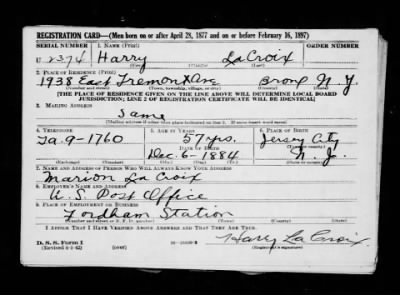 REGISTRATION CARD—(Men born on or after April 28, 1877 and on or before February 16, 1897)
SERIAL NUMBER 1. NAME (Print) ORDER NUMBER
U 2374 Harry LaCroix
(First) (Middle) (Last)
2. PLACE OF RESIDENCE (Print)
1938 East Tremont Ave Bronx N.Y.
(Number and street) (Town, township, village, or city) (County) (State)
[THE PLACE OF RESIDENCE GIVEN ON THE LINE ABOVE WILL DETERMINE LOCAL BOARD
JURISDICTION; LINE 2 OF REGISTRATION CERTIFICATE WILL BE IDENTICAL]
3. MAILING ADDRESS
Same
[Mailing address if other than place indicated on line 2. If same insert word same]
4. TELEPHONE 5. AGE IN YEARS 6. PLACE OF BIRTH
Ta. 9-1760 57 yrs. Jersey City
DATE OF BIRTH (Town or county)
Dec. 6-1884 N.J.
(Mo.) (Day) (Yr.) (State or country)
7. NAME AND ADDRESS OF PERSON WHO WILL ALWAYS KNOW YOUR ADDRESS
Marion LaCroix
8. EMPLOYER'S NAME AND ADDRESS
U.S. Post Office
9. PLACE OF EMPLOYMENT OR BUSINESS
Fordham Station
(Number and street or R. F. D. number) (Town) (County) (State)
I AFFIRM THAT I HAVE VERIFIED ABOVE ANSWERS AND THAT THEY ARE TRUE.
D. S. S. Form 1 Harry LaCroix
(Revised 4-1-42) (over) (Registrant's signature)